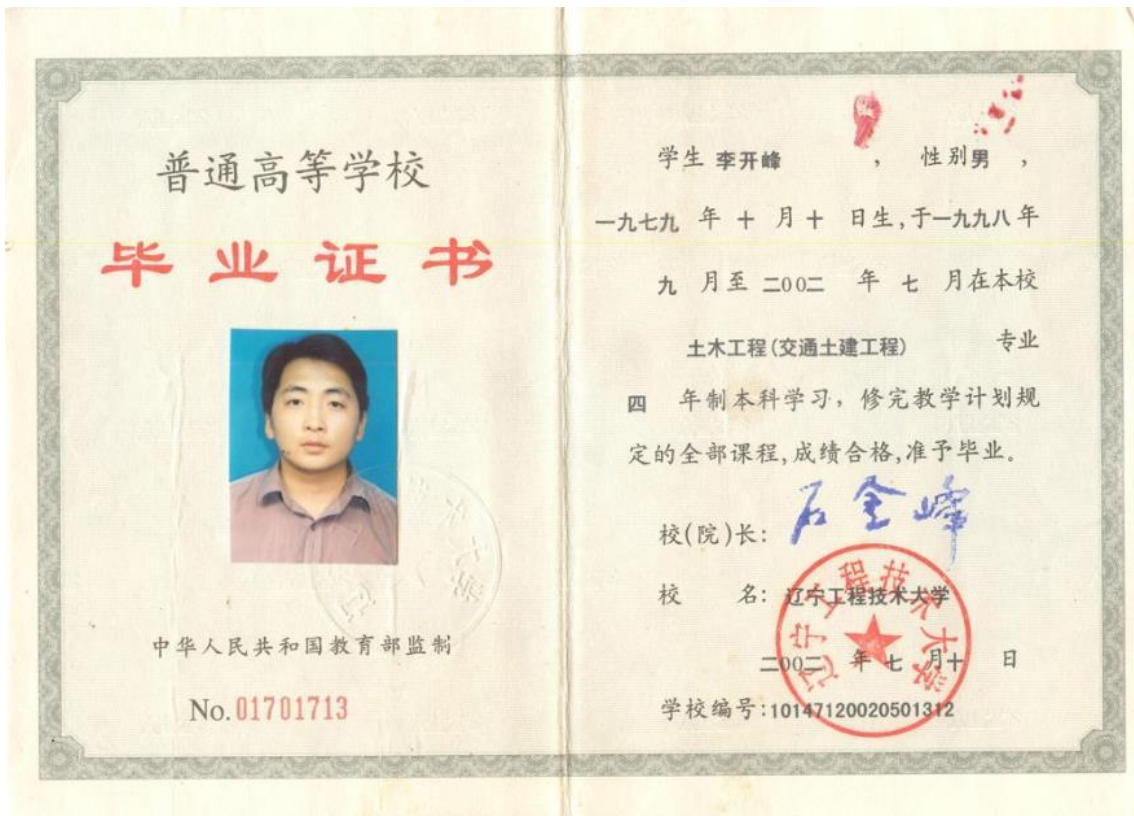 普通高等学校
毕业证书
中华人民共和国教育部监制
No. 01701713
学生 李开峰 , 性别男 ,
一九七九 年 十 月 十 日生,于一九九八年
九 月至 二00二 年 七 月在本校
土木工程(交通土建工程) 专业
四 年制本科学习, 修完教学计划规
定的全部课程,成绩合格,准予毕业。
校(院)长:
校 名: 辽宁工程技术大学
二00二 年 七 月十 日
学校编号:10147120020501312
辽宁工程技术大学